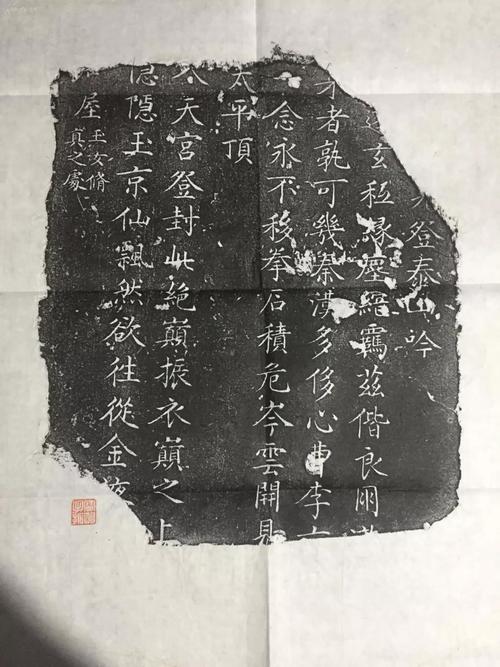 登泰山吟
玄秘尋塵羅羈茲偕良朋
者孰可幾秦漢多侈心曹李
一念永不移拳石積危岑雲開見
太平頂
天宮登封此絕巔振衣巔之上
隱玉京仙飄然欲往從金液
屋玉女脩
真之處